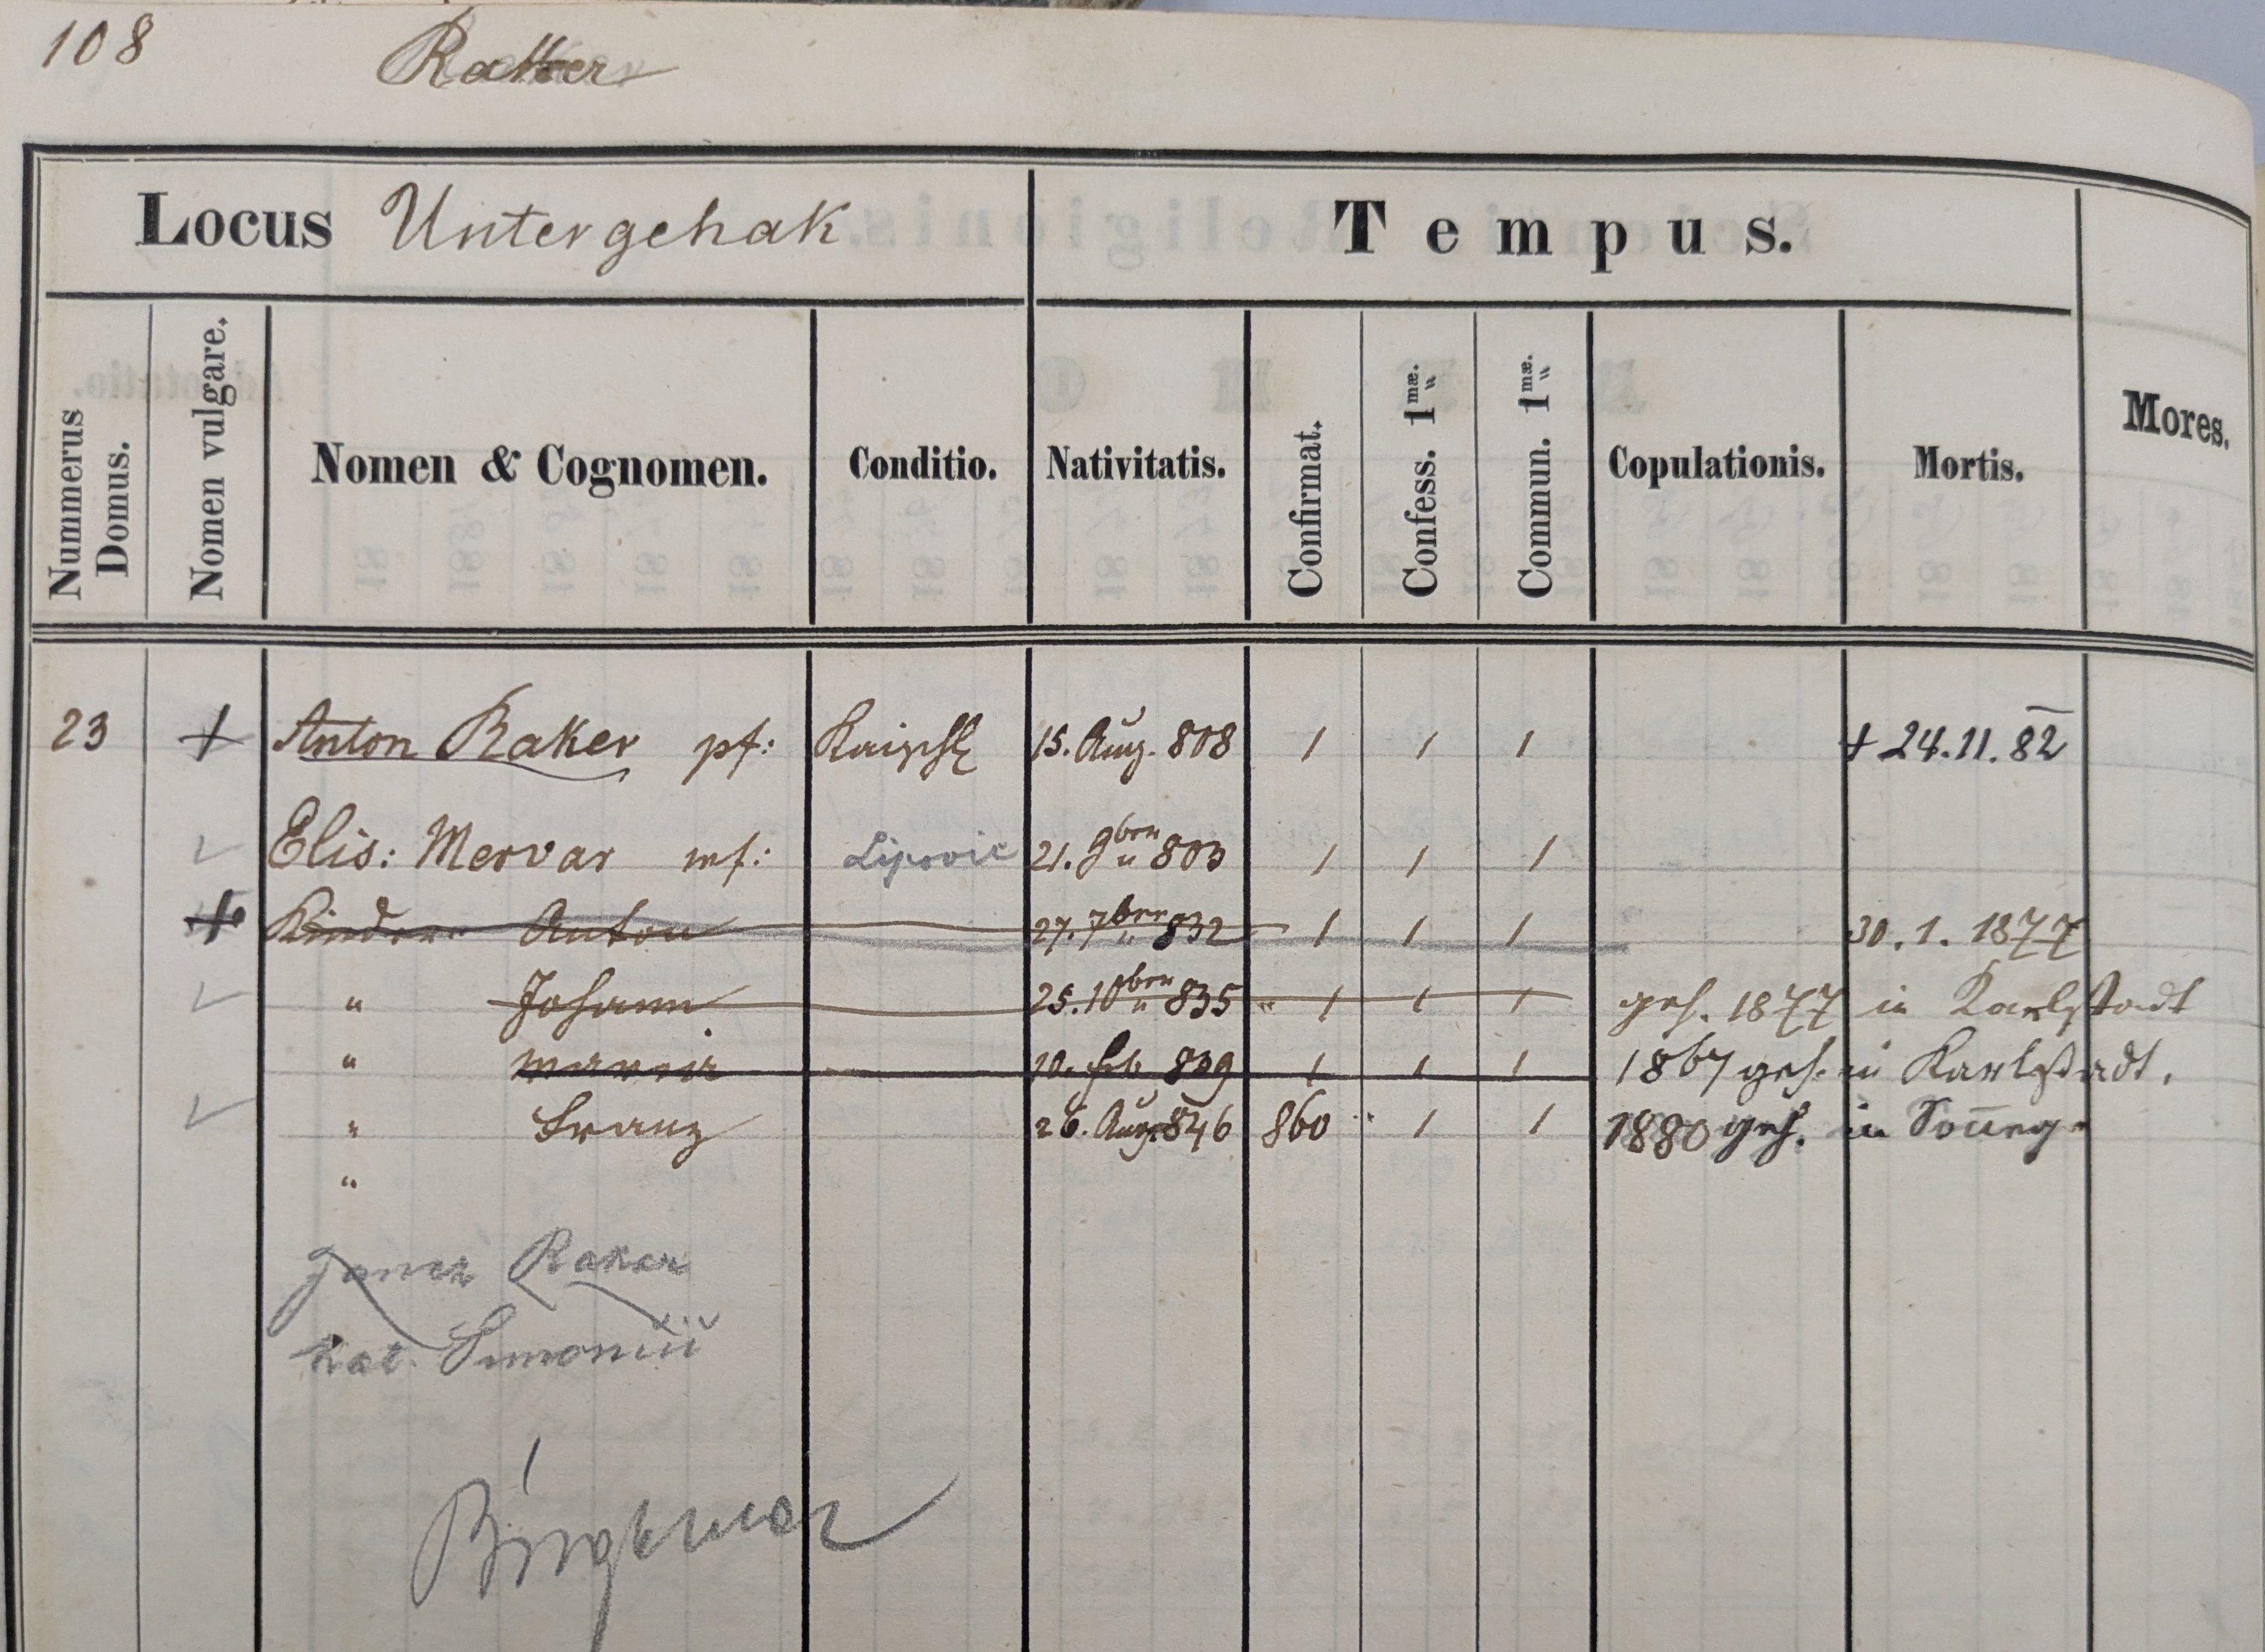 108 Raker
Locus Untergehak
Tempus.
Mores.
Nummerus Domus.
Nomen vulgare.
Nomen & Cognomen.
Conditio.
Nativitatis.
Confirmat.
Confess. 1mæ.
Commun. 1mæ.
Copulationis.
Mortis.
23 + Anton Raker pf: Kaischl 15. Aug. 808 / / / + 24.11.82
Elis: Mervar mf: Lipovic 21. 9ber 803 / / /
+ Kinder Anton 27. 7ber 832 / / / 30. 1. 1877
" Johann 25. 10ber 835 " / / / geh. 1877 in Karlstadt
" Maria 10. feb. 839 / / / 1867 geh. in Karlstadt.
" Franz 26. Aug. 846 860 / / 1880 geh. in
"
Janez Raker
Kat.